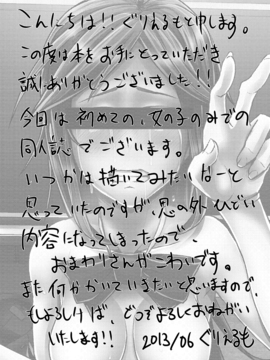 こんにちは!!ぐりえるもと申します。
この度は本をお手にとっていただき
誠にありがとうございました!!
今回は初めての、女の子のみでの
同人誌でございます。
いつかは描いてみたいなーと
思っていたのですが、思の外ひどい
内容になってしまったので、
おまわりさんがこわいです。
また何かかいていきたいと思いますので、
もしよろしければ、どうぞよろしくおねがい
いたします!! 2013/06 ぐりえるも